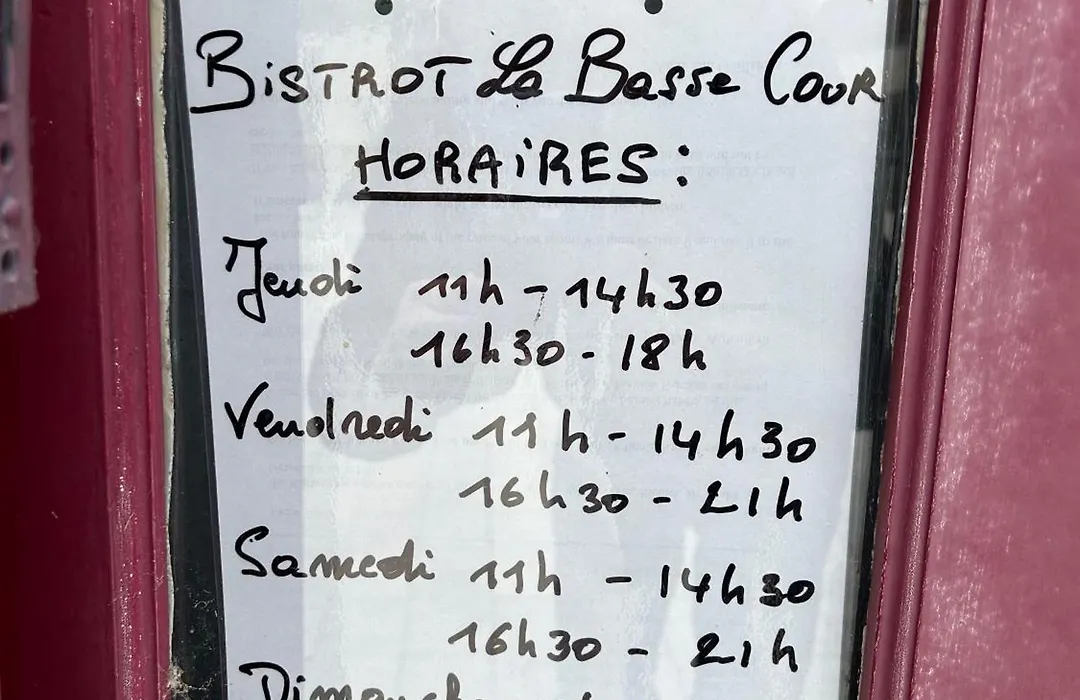 BiSTROT La Basse Cour
HORAiRES:
Jeudi 11h - 14h30
16h30 - 18h
Vendredi 11h - 14h30
16h30 - 21h
Samedi 11h - 14h30
16h30 - 21h
Dimanche